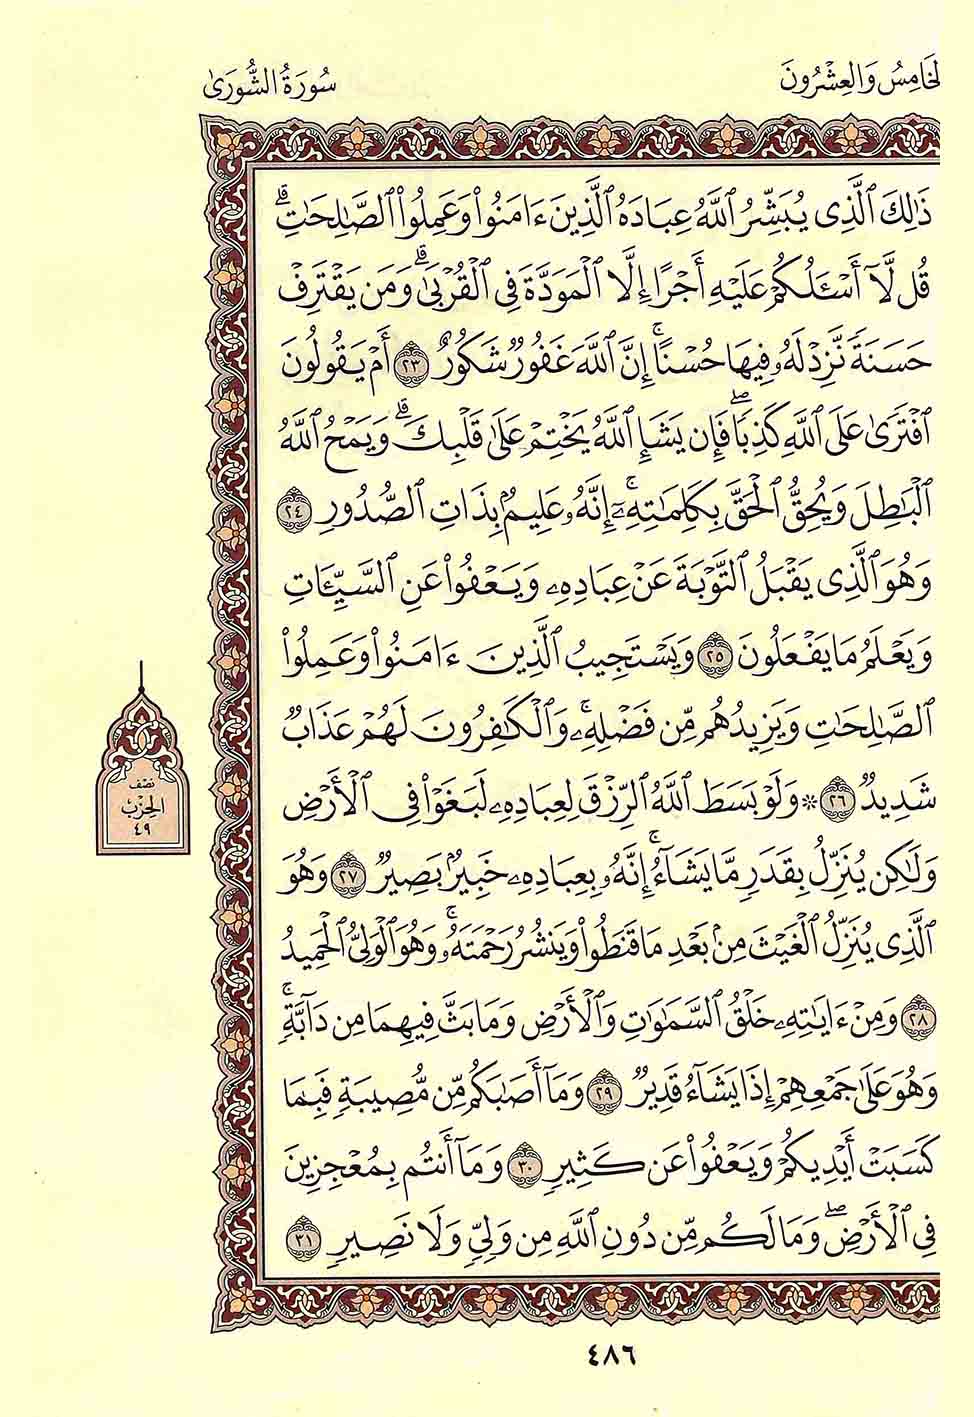 لخَامِسُ وَالعِشْرُونَ
سُورَةُ الشُّورَىٰ
ذَٰلِكَ ٱلَّذِى يُبَشِّرُ ٱللَّهُ عِبَادَهُ ٱلَّذِينَ ءَامَنُوا۟ وَعَمِلُوا۟ ٱلصَّـٰلِحَـٰتِ ۗ
قُل لَّآ أَسْـَٔلُكُمْ عَلَيْهِ أَجْرًا إِلَّا ٱلْمَوَدَّةَ فِى ٱلْقُرْبَىٰ ۗ وَمَن يَقْتَرِفْ
حَسَنَةً نَّزِدْ لَهُۥ فِيهَا حُسْنًا ۚ إِنَّ ٱللَّهَ غَفُورٌ شَكُورٌ ٢٣ أَمْ يَقُولُونَ
ٱفْتَرَىٰ عَلَى ٱللَّهِ كَذِبًا ۖ فَإِن يَشَإِ ٱللَّهُ يَخْتِمْ عَلَىٰ قَلْبِكَ ۗ وَيَمْحُ ٱللَّهُ
ٱلْبَـٰطِلَ وَيُحِقُّ ٱلْحَقَّ بِكَلِمَـٰتِهِۦٓ ۚ إِنَّهُۥ عَلِيمٌۢ بِذَاتِ ٱلصُّدُورِ ٢٤
وَهُوَ ٱلَّذِى يَقْبَلُ ٱلتَّوْبَةَ عَنْ عِبَادِهِۦ وَيَعْفُوا۟ عَنِ ٱلسَّيِّـَٔاتِ
وَيَعْلَمُ مَا يَفْعَلُونَ ٢٥ وَيَسْتَجِيبُ ٱلَّذِينَ ءَامَنُوا۟ وَعَمِلُوا۟
ٱلصَّـٰلِحَـٰتِ وَيَزِيدُهُم مِّن فَضْلِهِۦ ۚ وَٱلْكَـٰفِرُونَ لَهُمْ عَذَابٌ
شَدِيدٌ ٢٦ ۞ وَلَوْ بَسَطَ ٱللَّهُ ٱلرِّزْقَ لِعِبَادِهِۦ لَبَغَوْا۟ فِى ٱلْأَرْضِ
نصْف
الحِزْب
٤٩
وَلَـٰكِن يُنَزِّلُ بِقَدَرٍ مَّا يَشَآءُ ۚ إِنَّهُۥ بِعِبَادِهِۦ خَبِيرٌۢ بَصِيرٌ ٢٧ وَهُوَ
ٱلَّذِى يُنَزِّلُ ٱلْغَيْثَ مِنۢ بَعْدِ مَا قَنَطُوا۟ وَيَنشُرُ رَحْمَتَهُۥ ۚ وَهُوَ ٱلْوَلِىُّ ٱلْحَمِيدُ
٢٨ وَمِنْ ءَايَـٰتِهِۦ خَلْقُ ٱلسَّمَـٰوَٰتِ وَٱلْأَرْضِ وَمَا بَثَّ فِيهِمَا مِن دَآبَّةٍ ۚ
وَهُوَ عَلَىٰ جَمْعِهِمْ إِذَا يَشَآءُ قَدِيرٌ ٢٩ وَمَآ أَصَـٰبَكُم مِّن مُّصِيبَةٍ فَبِمَا
كَسَبَتْ أَيْدِيكُمْ وَيَعْفُوا۟ عَن كَثِيرٍ ٣٠ وَمَآ أَنتُم بِمُعْجِزِينَ
فِى ٱلْأَرْضِ ۖ وَمَا لَكُم مِّن دُونِ ٱللَّهِ مِن وَلِىٍّ وَلَا نَصِيرٍ ٣١
٤٨٦